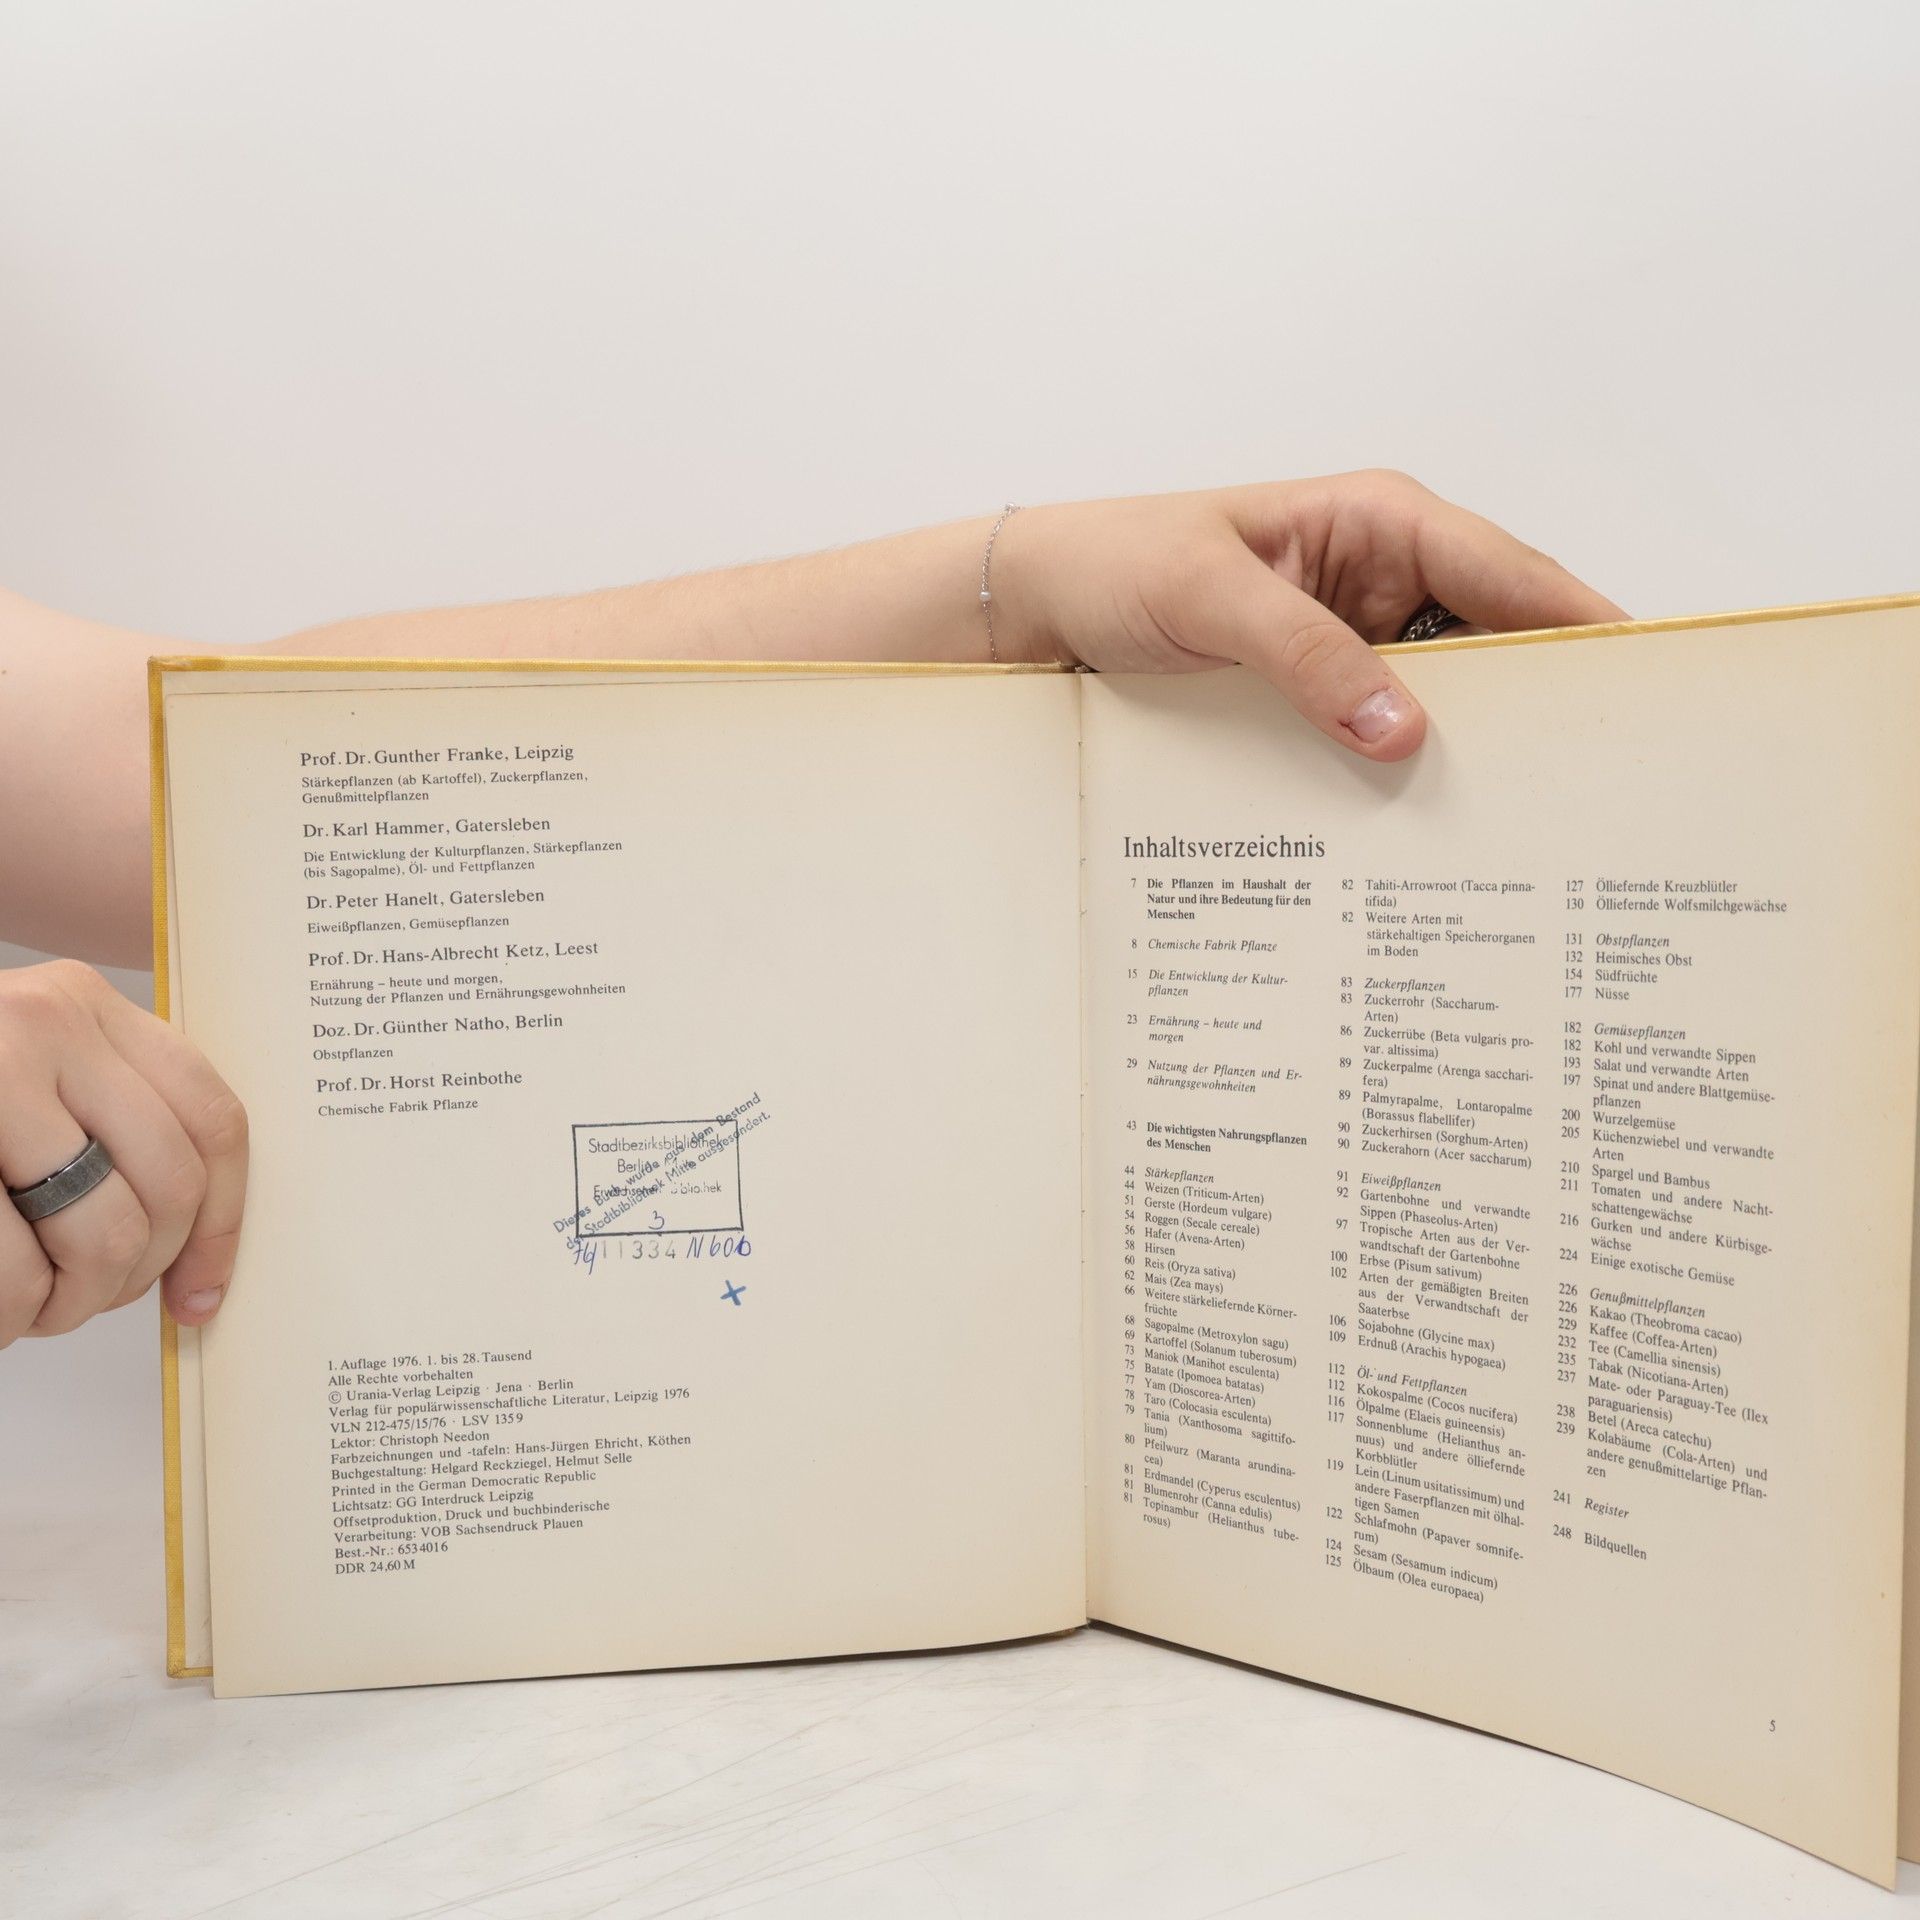 Prof. Dr. Gunther Franke, Leipzig
Stärkepflanzen (ab Kartoffel), Zuckerpflanzen,
Genußmittelpflanzen
Dr. Karl Hammer, Gatersleben
Die Entwicklung der Kulturpflanzen, Stärkepflanzen
(bis Sagopalme), Öl- und Fettpflanzen
Dr. Peter Hanelt, Gatersleben
Eiweißpflanzen, Gemüsepflanzen
Prof. Dr. Hans-Albrecht Ketz, Leest
Ernährung – heute und morgen,
Nutzung der Pflanzen und Ernährungsgewohnheiten
Doz. Dr. Günther Natho, Berlin
Obstpflanzen
Prof. Dr. Horst Reinbothe
Chemische Fabrik Pflanze
Stadtbezirksbibliothek
Berlin
3
Dieses Buch wurde aus dem Bestand
der Stadtbibliothek Mitte ausgesondert.
11334
1. Auflage 1976. 1. bis 28. Tausend
Alle Rechte vorbehalten
© Urania-Verlag Leipzig · Jena · Berlin
Verlag für populärwissenschaftliche Literatur, Leipzig 1976
VLN 212-475/15/76 · LSV 1359
Lektor: Christoph Needon
Farbzeichnungen und -tafeln: Hans-Jürgen Ehricht, Köthen
Buchgestaltung: Helgard Reckziegel, Helmut Selle
Printed in the German Democratic Republic
Lichtsatz: GG Interdruck Leipzig
Offsetproduktion, Druck und buchbinderische
Verarbeitung: VOB Sachsendruck Plauen
Best.-Nr.: 6534016
DDR 24,60 M
Inhaltsverzeichnis
7 Die Pflanzen im Haushalt der
Natur und ihre Bedeutung für den
Menschen
8 Chemische Fabrik Pflanze
15 Die Entwicklung der Kultur-
pflanzen
23 Ernährung – heute und
morgen
29 Nutzung der Pflanzen und Er-
nährungsgewohnheiten
43 Die wichtigsten Nahrungspflanzen
des Menschen
44 Stärkepflanzen
44 Weizen (Triticum-Arten)
51 Gerste (Hordeum vulgare)
54 Roggen (Secale cereale)
56 Hafer (Avena-Arten)
58 Hirsen
60 Reis (Oryza sativa)
62 Mais (Zea mays)
66 Weitere stärkeliefernde Körner-
früchte
68 Sagopalme (Metroxylon sagu)
69 Kartoffel (Solanum tuberosum)
73 Maniok (Manihot esculenta)
75 Batate (Ipomoea batatas)
77 Yam (Dioscorea-Arten)
78 Taro (Colocasia esculenta)
79 Tania (Xanthosoma sagittifo-
lium)
80 Pfeilwurz (Maranta arundina-
cea)
81 Erdmandel (Cyperus esculentus)
81 Blumenrohr (Canna edulis)
81 Topinambur (Helianthus tube-
rosus)
82 Tahiti-Arrowroot (Tacca pinna-
tifida)
82 Weitere Arten mit
stärkehaltigen Speicherorganen
im Boden
83 Zuckerpflanzen
83 Zuckerrohr (Saccharum-
Arten)
86 Zuckerrübe (Beta vulgaris pro-
var. altissima)
89 Zuckerpalme (Arenga sacchari-
fera)
89 Palmyrapalme, Lontaropalme
(Borassus flabellifer)
90 Zuckerhirsen (Sorghum-Arten)
90 Zuckerahorn (Acer saccharum)
91 Eiweißpflanzen
92 Gartenbohne und verwandte
Sippen (Phaseolus-Arten)
97 Tropische Arten aus der Ver-
wandtschaft der Gartenbohne
100 Erbse (Pisum sativum)
102 Arten der gemäßigten Breiten
aus der Verwandtschaft der
Saaterbse
106 Sojabohne (Glycine max)
109 Erdnuß (Arachis hypogaea)
112 Öl- und Fettpflanzen
112 Kokospalme (Cocos nucifera)
116 Ölpalme (Elaeis guineensis)
117 Sonnenblume (Helianthus an-
nuus) und andere ölliefernde
Korbblütler
119 Lein (Linum usitatissimum) und
andere Faserpflanzen mit ölhal-
tigen Samen
122 Schlafmohn (Papaver somnife-
rum)
124 Sesam (Sesamum indicum)
125 Ölbaum (Olea europaea)
127 Ölliefernde Kreuzblütler
130 Ölliefernde Wolfsmilchgewächse
131 Obstpflanzen
132 Heimisches Obst
154 Südfrüchte
177 Nüsse
182 Gemüsepflanzen
182 Kohl und verwandte Sippen
193 Salat und verwandte Arten
197 Spinat und andere Blattgemüse-
pflanzen
200 Wurzelgemüse
205 Küchenzwiebel und verwandte
Arten
210 Spargel und Bambus
211 Tomaten und andere Nacht-
schattengewächse
216 Gurken und andere Kürbisge-
wächse
224 Einige exotische Gemüse
226 Genußmittelpflanzen
226 Kakao (Theobroma cacao)
229 Kaffee (Coffea-Arten)
232 Tee (Camellia sinensis)
235 Tabak (Nicotiana-Arten)
237 Mate- oder Paraguay-Tee (Ilex
paraguariensis)
238 Betel (Areca catechu)
239 Kolabäume (Cola-Arten) und
andere genußmittelartige Pflan-
zen
241 Register
248 Bildquellen
5